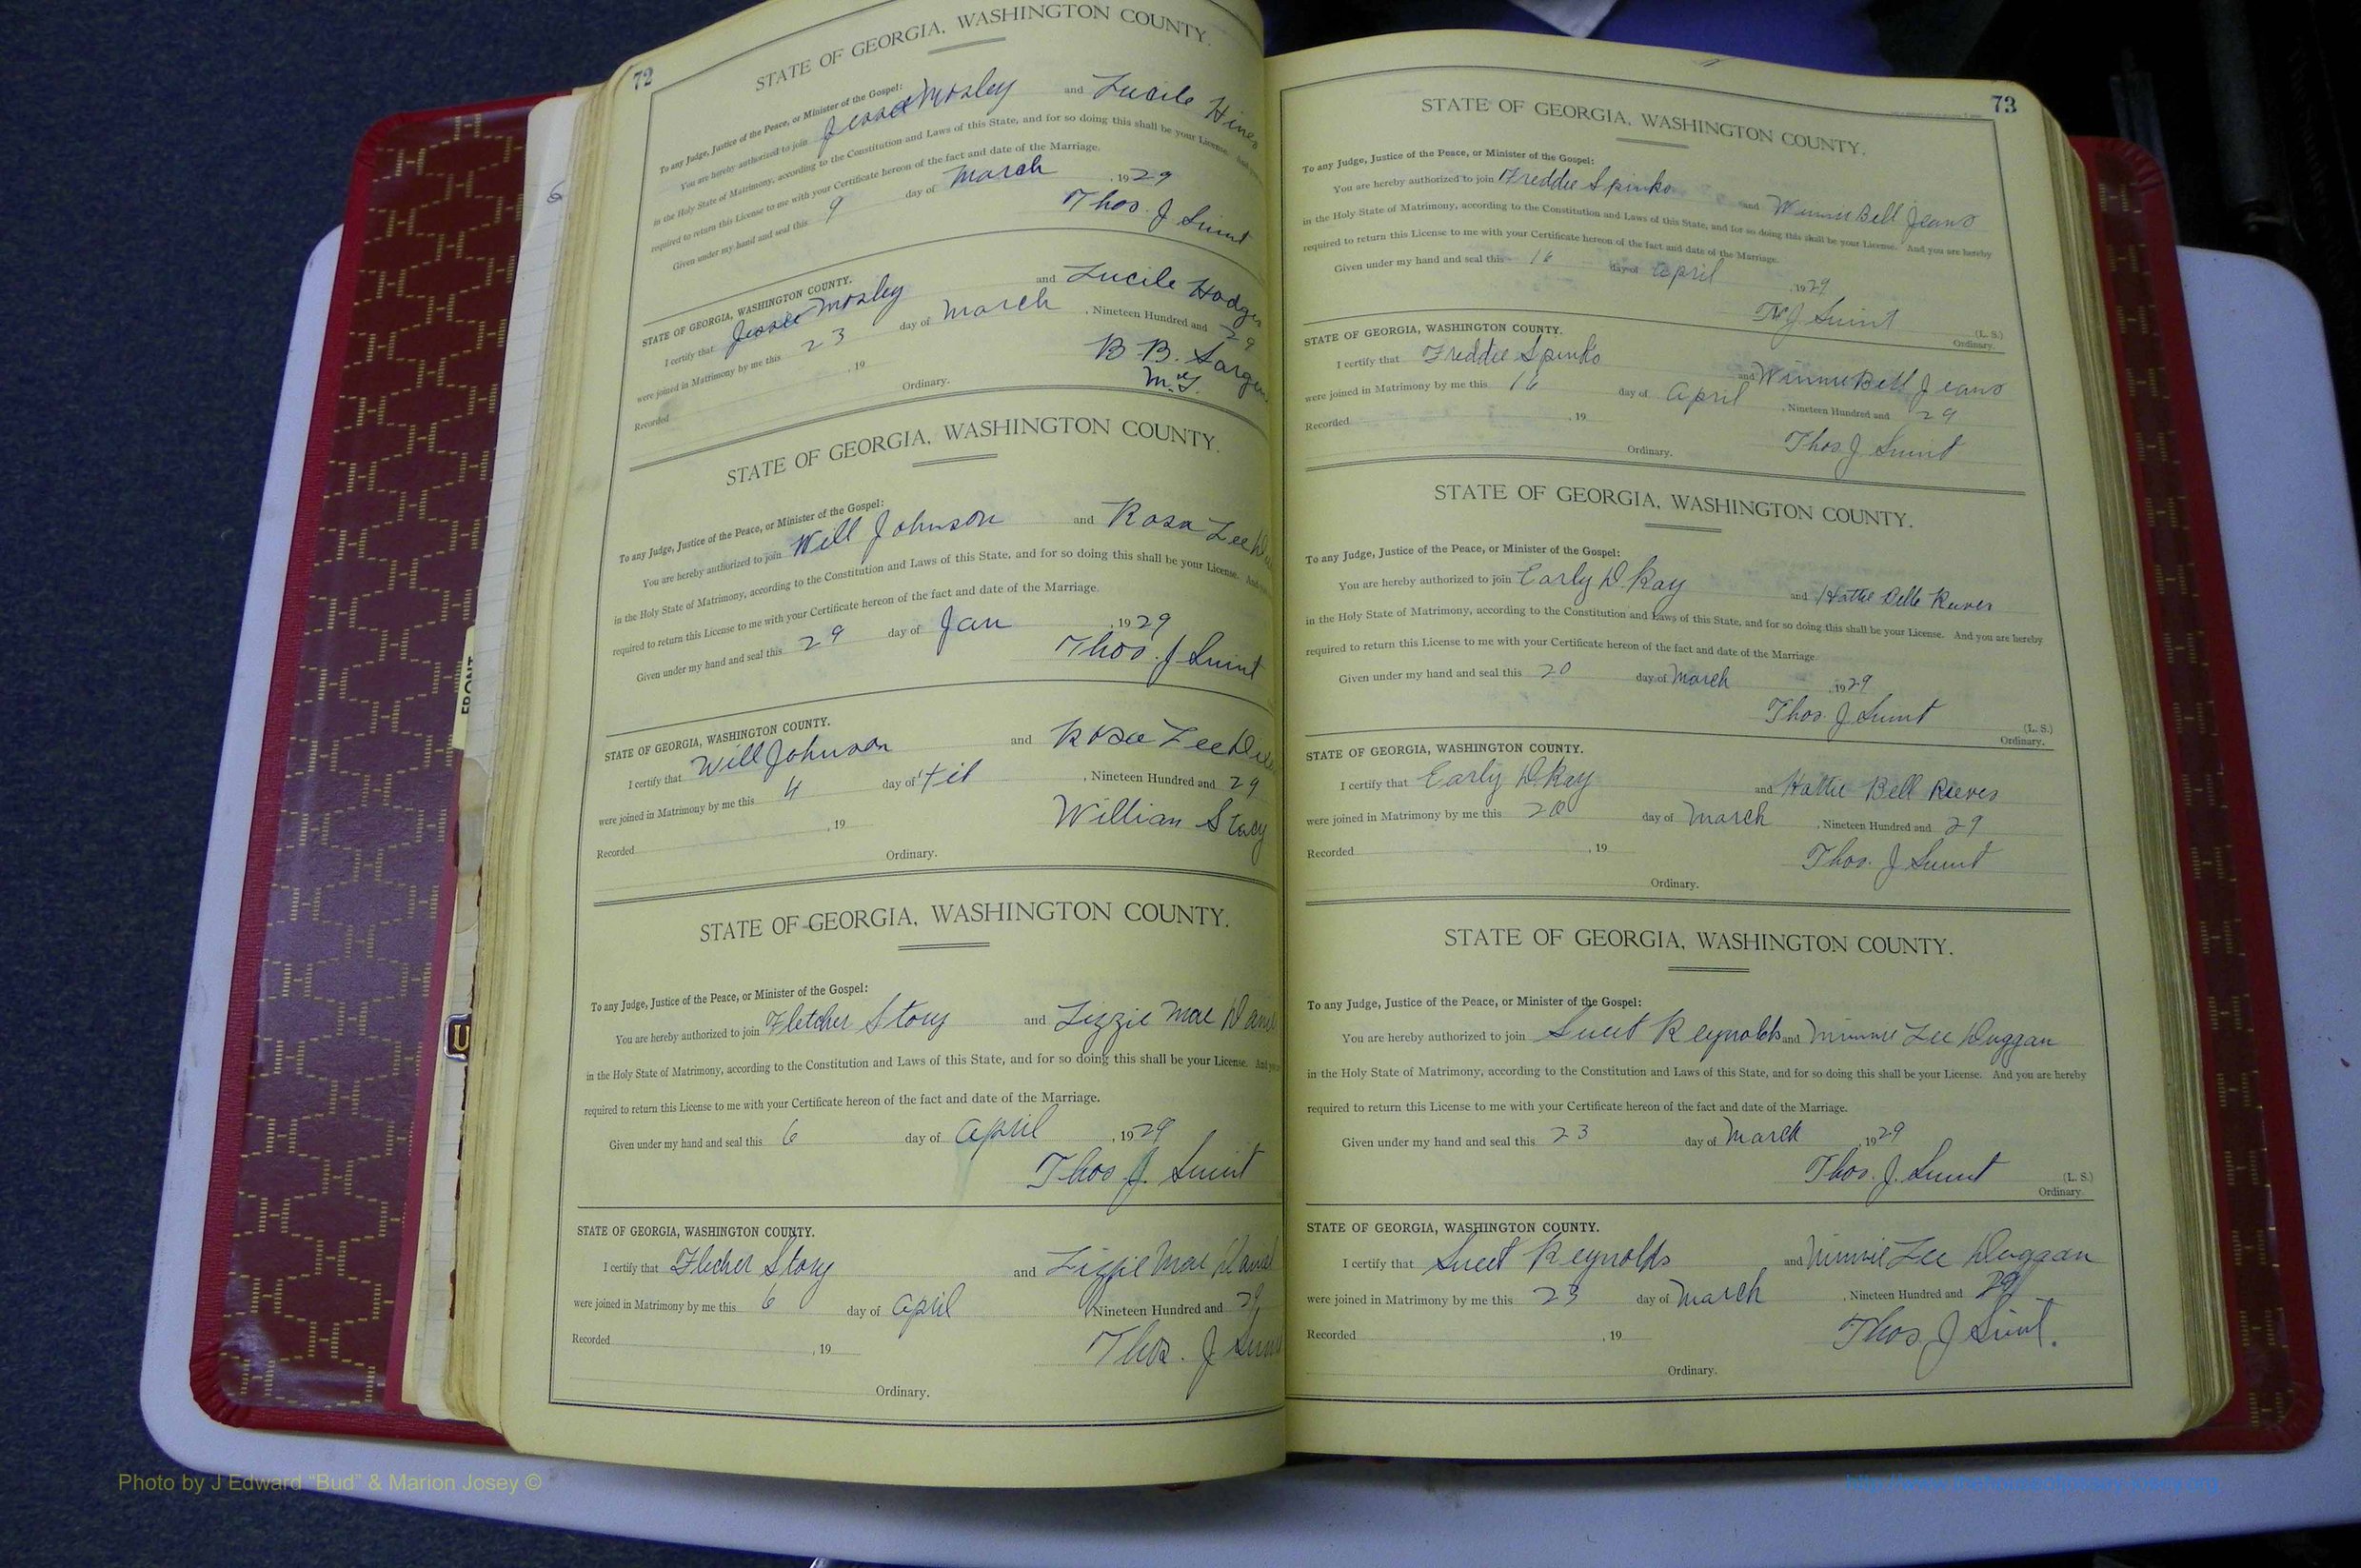 72
STATE OF GEORGIA, WASHINGTON COUNTY.
To any Judge, Justice of the Peace, or Minister of the Gospel:
You are hereby authorized to join Jessie Mosley and Lucile Hines
in the Holy State of Matrimony, according to the Constitution and Laws of this State, and for so doing this shall be your License. And you
required to return this License to me with your Certificate hereon of the fact and date of the Marriage.
Given under my hand and seal this 9 day of March , 1929
Thos. J Swint
STATE OF GEORGIA, WASHINGTON COUNTY.
I certify that Jessie Mosley and Lucile Hodges
were joined in Matrimony by me this 23 day of March , Nineteen Hundred and 29
B. B. Sargen
M.G.
Recorded , 19
Ordinary.
STATE OF GEORGIA, WASHINGTON COUNTY.
To any Judge, Justice of the Peace, or Minister of the Gospel:
You are hereby authorized to join Will Johnson and Rosa Lee
in the Holy State of Matrimony, according to the Constitution and Laws of this State, and for so doing this shall be your License. And
required to return this License to me with your Certificate hereon of the fact and date of the Marriage.
Given under my hand and seal this 29 day of Jan , 1929
Thos. J Swint
STATE OF GEORGIA, WASHINGTON COUNTY.
I certify that Will Johnson and Rosa Lee
were joined in Matrimony by me this 4 day of , Nineteen Hundred and 29
William Stacy
Recorded , 19
Ordinary.
STATE OF GEORGIA, WASHINGTON COUNTY.
To any Judge, Justice of the Peace, or Minister of the Gospel:
You are hereby authorized to join Fletcher Story and Lizzie Mae Daniel
in the Holy State of Matrimony, according to the Constitution and Laws of this State, and for so doing this shall be your License. And
required to return this License to me with your Certificate hereon of the fact and date of the Marriage.
Given under my hand and seal this 6 day of April , 1929
Thos. J. Swint
STATE OF GEORGIA, WASHINGTON COUNTY.
I certify that Flecher Story and Lizzie Mae Daniel
were joined in Matrimony by me this 6 day of April , Nineteen Hundred and 29
Thos. J Swint
Recorded , 19
Ordinary.
73
STATE OF GEORGIA, WASHINGTON COUNTY.
To any Judge, Justice of the Peace, or Minister of the Gospel:
You are hereby authorized to join Freddie Spinks and Winnie Bell Jeans
in the Holy State of Matrimony, according to the Constitution and Laws of this State, and for so doing this shall be your License. And you are hereby
required to return this License to me with your Certificate hereon of the fact and date of the Marriage.
Given under my hand and seal this 16 day of April , 1929
J Swint (L. S.)
Ordinary.
STATE OF GEORGIA, WASHINGTON COUNTY.
I certify that Freddie Spinks and Winnie Bell Jeans
were joined in Matrimony by me this 16 day of April , Nineteen Hundred and 29
Recorded , 19 Thos. J Swint
Ordinary.
STATE OF GEORGIA, WASHINGTON COUNTY.
To any Judge, Justice of the Peace, or Minister of the Gospel:
You are hereby authorized to join Early D. Ray and Hattie Belle Reeves
in the Holy State of Matrimony, according to the Constitution and Laws of this State, and for so doing this shall be your License. And you are hereby
required to return this License to me with your Certificate hereon of the fact and date of the Marriage.
Given under my hand and seal this 20 day of March , 1929
Thos. J. Swint (L. S.)
Ordinary.
STATE OF GEORGIA, WASHINGTON COUNTY.
I certify that Early D. Ray and Hattie Bell Reeves
were joined in Matrimony by me this 20 day of March , Nineteen Hundred and 29
Recorded , 19 Thos. J Swint
Ordinary.
STATE OF GEORGIA, WASHINGTON COUNTY.
To any Judge, Justice of the Peace, or Minister of the Gospel:
You are hereby authorized to join Sweet Reynolds and Minnie Lee Duggan
in the Holy State of Matrimony, according to the Constitution and Laws of this State, and for so doing this shall be your License. And you are hereby
required to return this License to me with your Certificate hereon of the fact and date of the Marriage.
Given under my hand and seal this 23 day of March , 1929
Thos. J. Swint (L. S.)
Ordinary.
STATE OF GEORGIA, WASHINGTON COUNTY.
I certify that Sweet Reynolds and Minnie Lee Duggan
were joined in Matrimony by me this 23 day of March , Nineteen Hundred and 29
Recorded , 19 Thos. J Swint.
Ordinary.
FRONT
Photo by J Edward “Bud” & Marion Josey ©